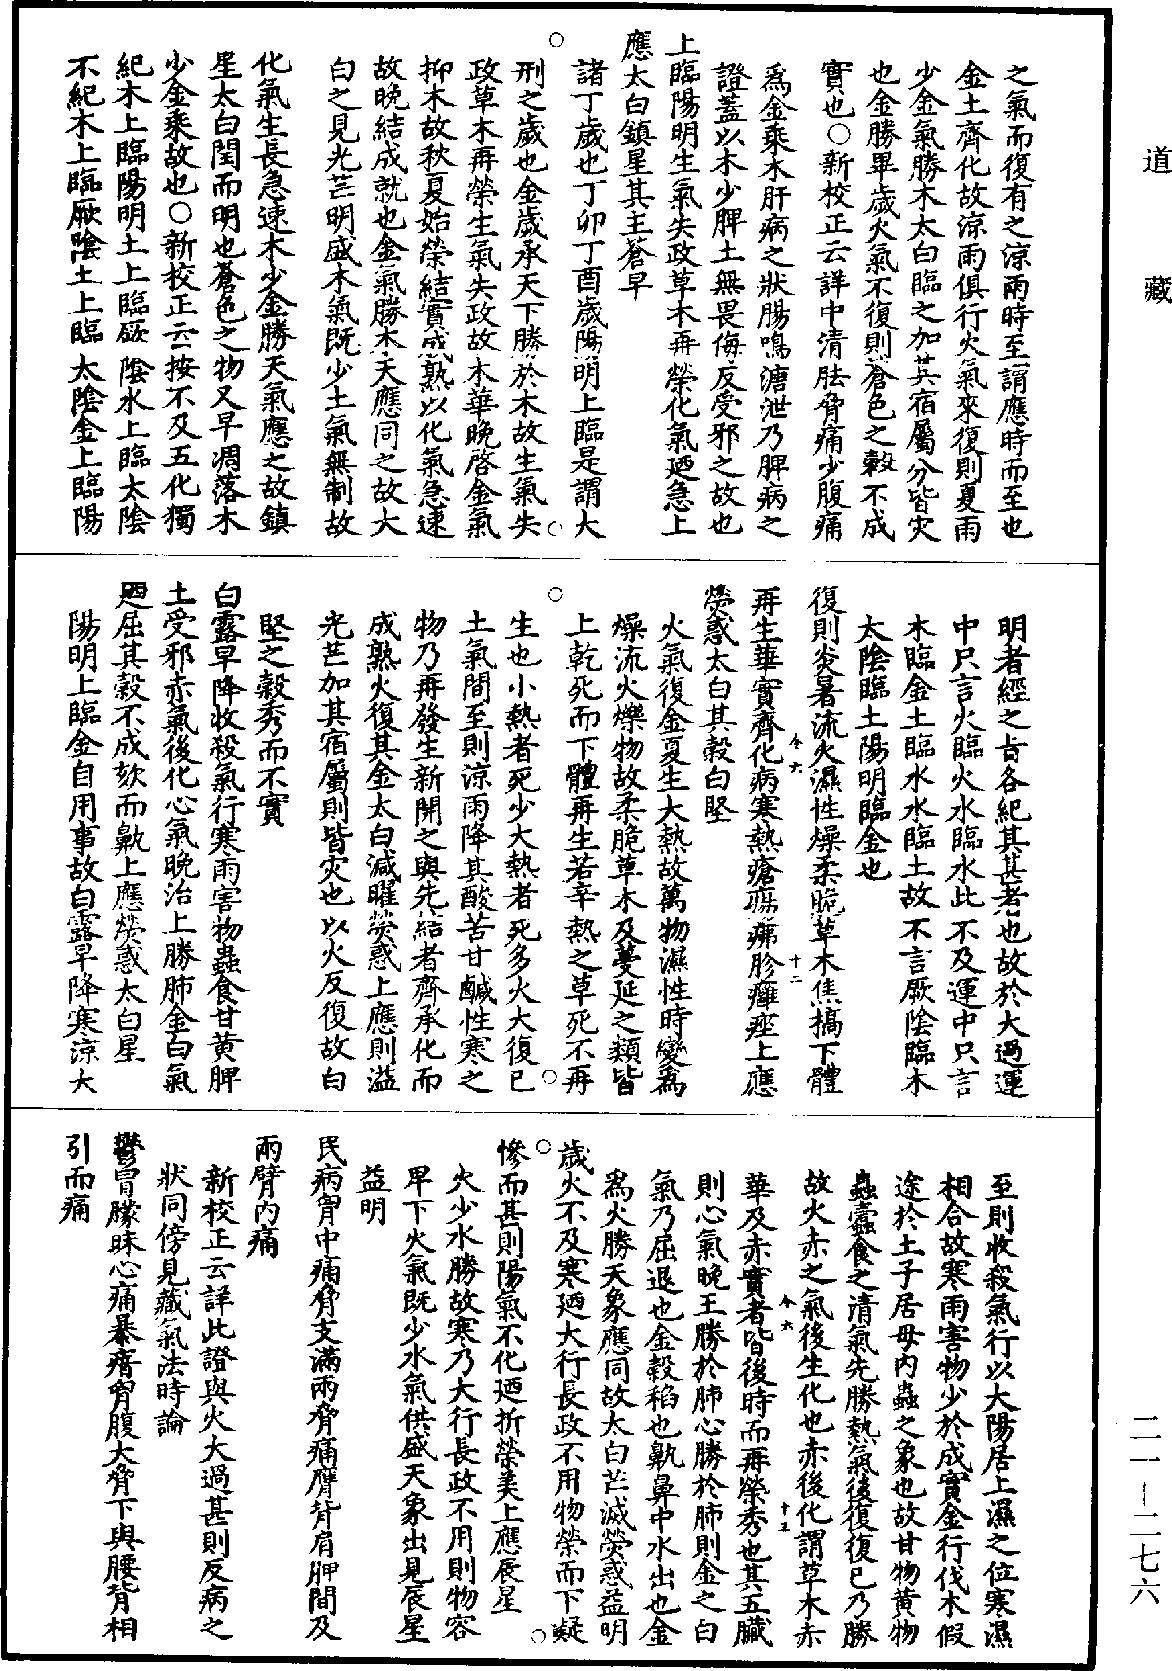 道藏
之氣而復有之涼雨時至謂應時而至也
金土齊化故涼雨俱行火氣來復則夏雨
少金氣勝木太白臨之加其宿屬分皆灾
也金勝畢歲火氣不復則蒼色之穀不成
實也○新校正云詳中清胠脅痛少腹痛
爲金乘木肝病之狀腸鳴溏泄乃脾病之
證蓋以木少脾土無畏侮反受邪之故也
上臨陽明生氣失政草木再榮化氣廼急上
應太白鎮星其主蒼早
諸丁歲也丁卯丁酉歲陽明上臨是謂天
刑之歲也金歲承天下勝於木故生氣失
政草木再榮生氣失政故木華晚啓金氣
抑木故秋夏始榮結實成熟以化氣急速
故晚結成就也金氣勝木天應同之故太
白之見光芒明盛木氣既少土氣無制故
化氣生長急速木少金勝天氣應之故鎮
星太白閏而明也蒼色之物又早凋落木
少金乘故也○新校正云按不及五化獨
紀木上臨陽明土上臨厥陰水上臨太陰
不紀木上臨厥陰土上臨太陰金上臨陽
明者經之旨各紀其甚者也故於大過運
中只言火臨火水臨水此不及運中只言
木臨金土臨水水臨土故不言厥陰臨木
太陰臨土陽明臨金也
復則炎暑流火濕性燥柔脆草木焦搞下體
再生華實齊化病寒熱瘡瘍疿胗癰痤上應
熒惑太白其穀白堅
火氣復金夏生大熱故萬物濕性時變爲
燥流火爍物故柔脆草木及蔓延之類皆
上乾死而下體再生若辛熱之草死不再
生也小熱者死少大熱者死多火大復已
土氣間至則涼雨降其酸苦甘鹹性寒之
物乃再發生新開之與先結者齊承化而
成熟火復其金太白減曜熒惑上應則溢
光芒加其宿屬則皆灾也以火反復故白
堅之穀秀而不實
白露早降收殺氣行寒雨害物蟲食甘黃脾
土受邪赤氣後化心氣晚治上勝肺金白氣
廼屈其穀不成欬而鼽上應熒惑太白星
陽明上臨金自用事故白露早降寒涼大
至則收殺氣行以太陽居上濕之位寒濕
相合故寒雨害物少於成實金行伐木假
途於土子居母內蟲之象也故甘物黃物
蟲蠹食之清氣先勝熱氣後復復已乃勝
故火赤之氣後生化也赤後化謂草木赤
華及赤實者皆後時而再榮秀也其五臟
則心氣晚王勝於肺心勝於肺則金之白
氣乃屈退也金穀稻也鼽鼻中水出也金
爲火勝天象應同故太白芒減熒惑益明
歲火不及寒廼大行長政不用物榮而下凝
慘而甚則陽氣不化廼折榮美上應辰星
火少水勝故寒乃大行長政不用則物容
卑下火氣既少水氣供盛天象出見辰星
益明
民病胷中痛脅支滿兩脅痛膺背肩胛間及
兩臂內痛
新校正云詳此證與火大過甚則反病之
狀同傍見藏氣法時論
鬱冒朦昧心痛暴瘖胷腹大脅下與腰背相
引而痛
二一-二七六